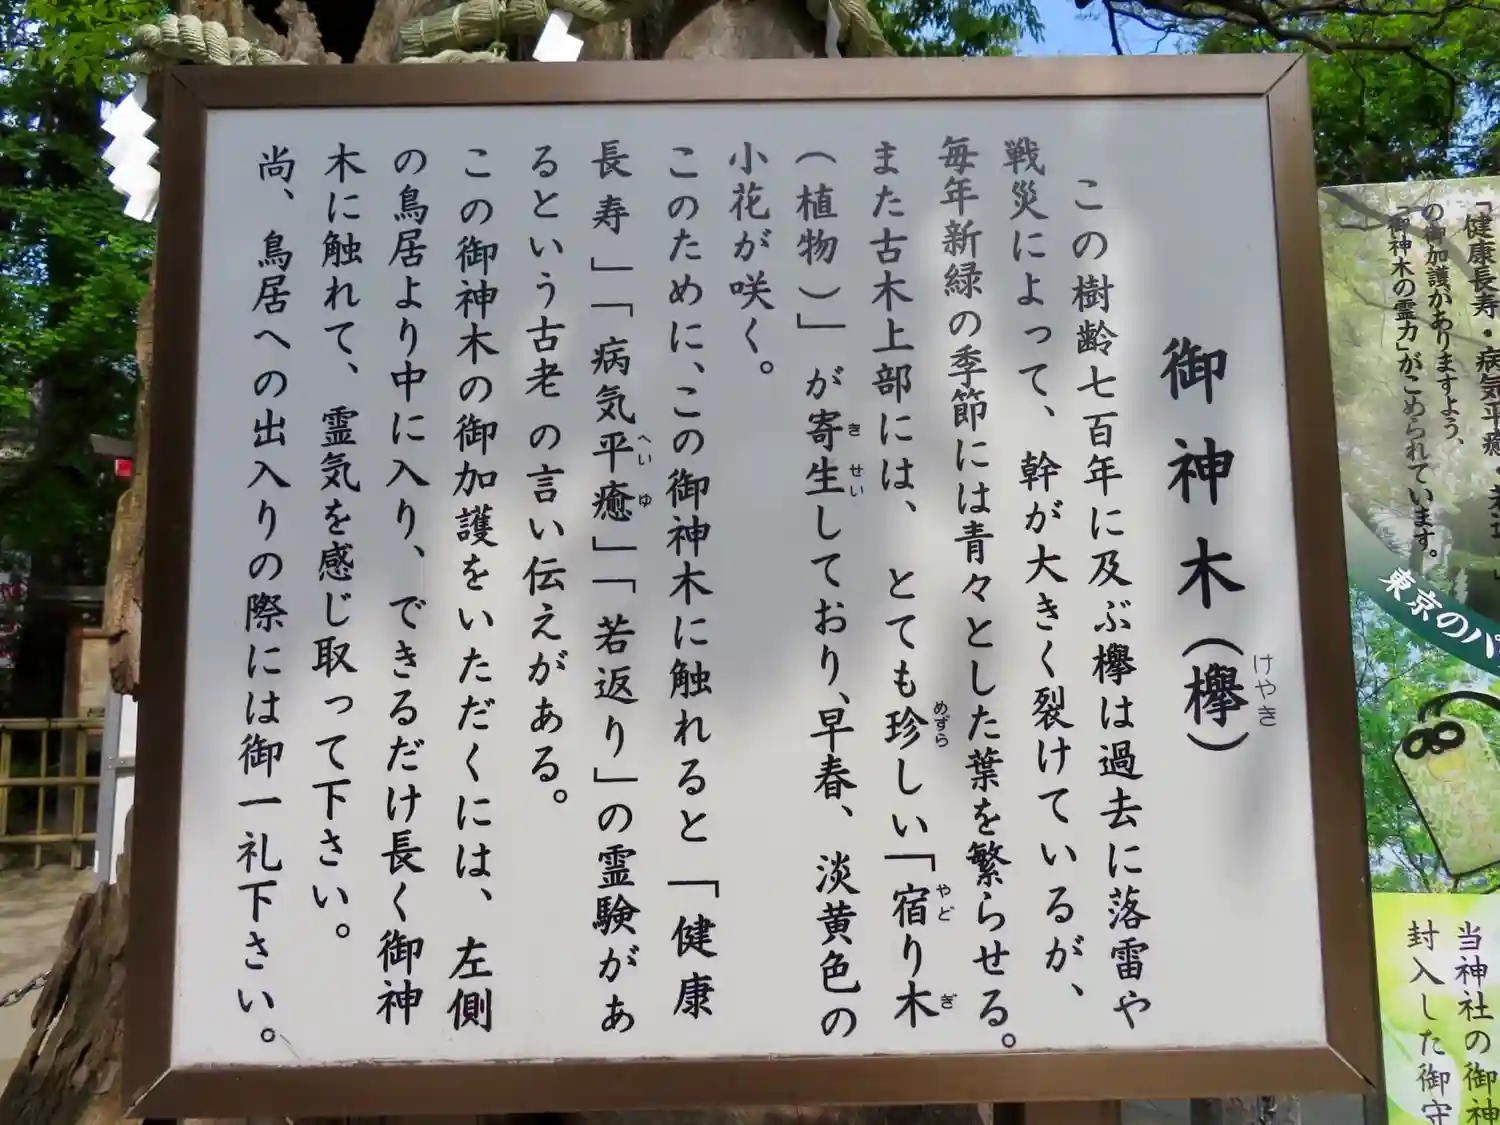 御神木（欅）
けやき
この樹齢七百年に及ぶ欅は過去に落雷や
戦災によって、幹が大きく裂けているが、
毎年新緑の季節には青々とした葉を繁らせる。
また古木上部には、とても珍しい「宿り木
めずら
やど
ぎ
（植物）」が寄生しており、早春、淡黄色の
き
せい
小花が咲く。
このために、この御神木に触れると「健康
長寿」「病気平癒」「若返り」の霊験があ
へい
ゆ
るという古老の言い伝えがある。
この御神木の御加護をいただくには、左側
の鳥居より中に入り、できるだけ長く御神
木に触れて、霊気を感じ取って下さい。
尚、鳥居への出入りの際には御一礼下さい。
「健康長寿・病気平癒・
の御加護がありますよう、
「御神木の霊力」がこめられています。
東京のパ
当神社の御神
封入した御守